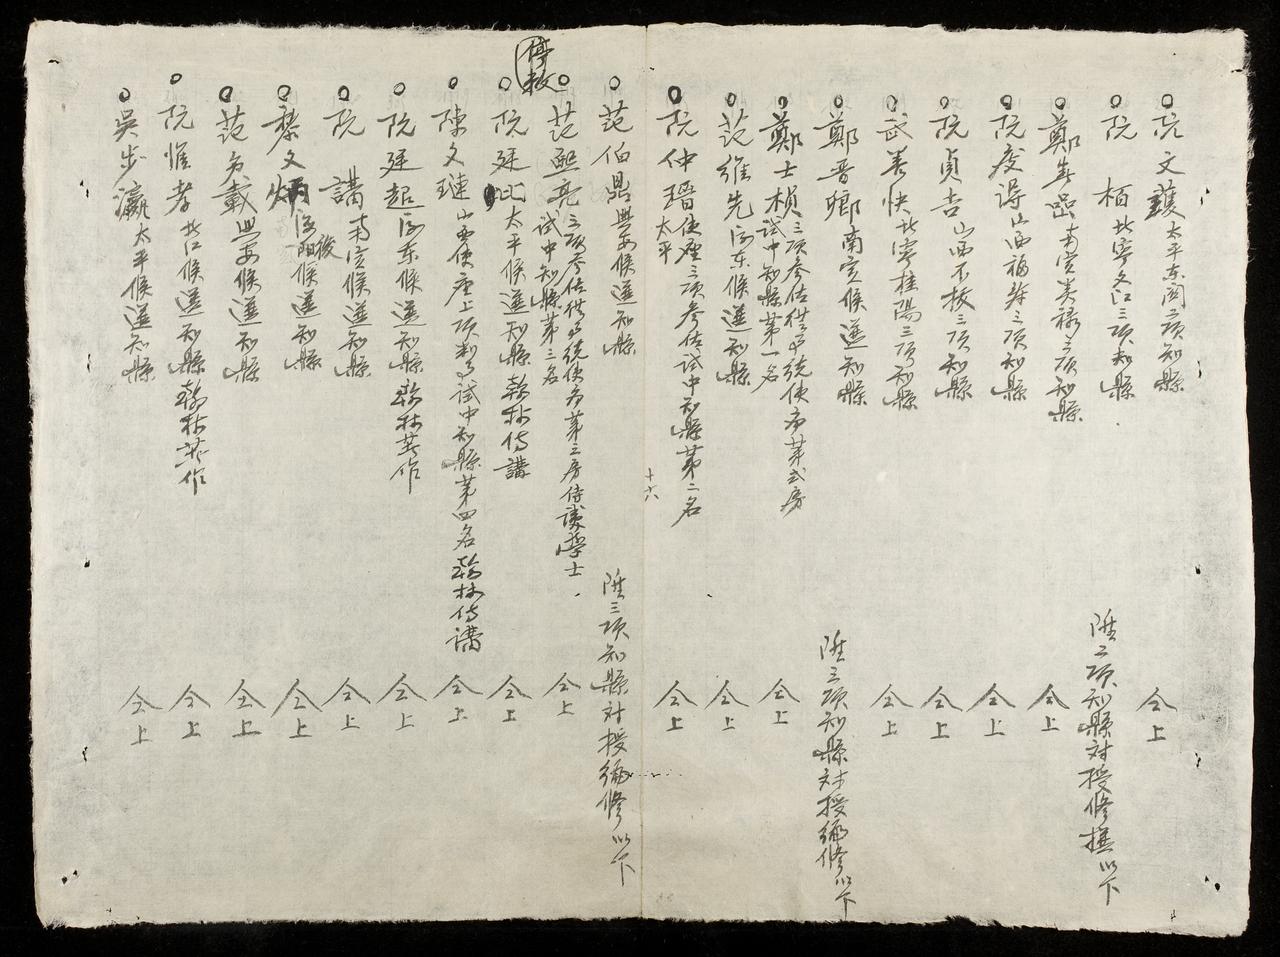 阮文䕶太平东関二項知縣 仝上
阮栢北寧文江三項知縣 陞二項知縣对授修撰以下
鄭壽 南定 三項知縣 仝上
阮慶淂山西福壽三項知縣 仝上
阮貞吉山西不拔三項知縣 仝上
武善快北寧桂陽三項知縣 仝上
鄭晋卿南定候選知縣 陞三項知縣对授编修以下
鄭士楨三項参佐 統使府第弍房試中知縣第一名 仝上
范維先河东候選知縣 仝上
阮仲瑨太平使座三項参佐試中知縣第二名 仝上
十六
范伯鼎興安候選知縣 陞三項知縣对授编修以下
范熙亮三項参佐 統使府第三房侍讀學士試中知縣第三名 仝上
停敘
阮廷比太平候選知縣翰林侍講 仝上
陳文璉山西使座上項 試中知縣第四名翰林侍講 仝上
阮廷起河东候選知縣翰林著作 仝上
阮講南定候選知縣 仝上
黎文炳 候選知縣 仝上
范負載興安候選知縣 仝上
阮惟孝北江候選知縣翰林著作 仝上
吳步瀛太平候選知縣 仝上